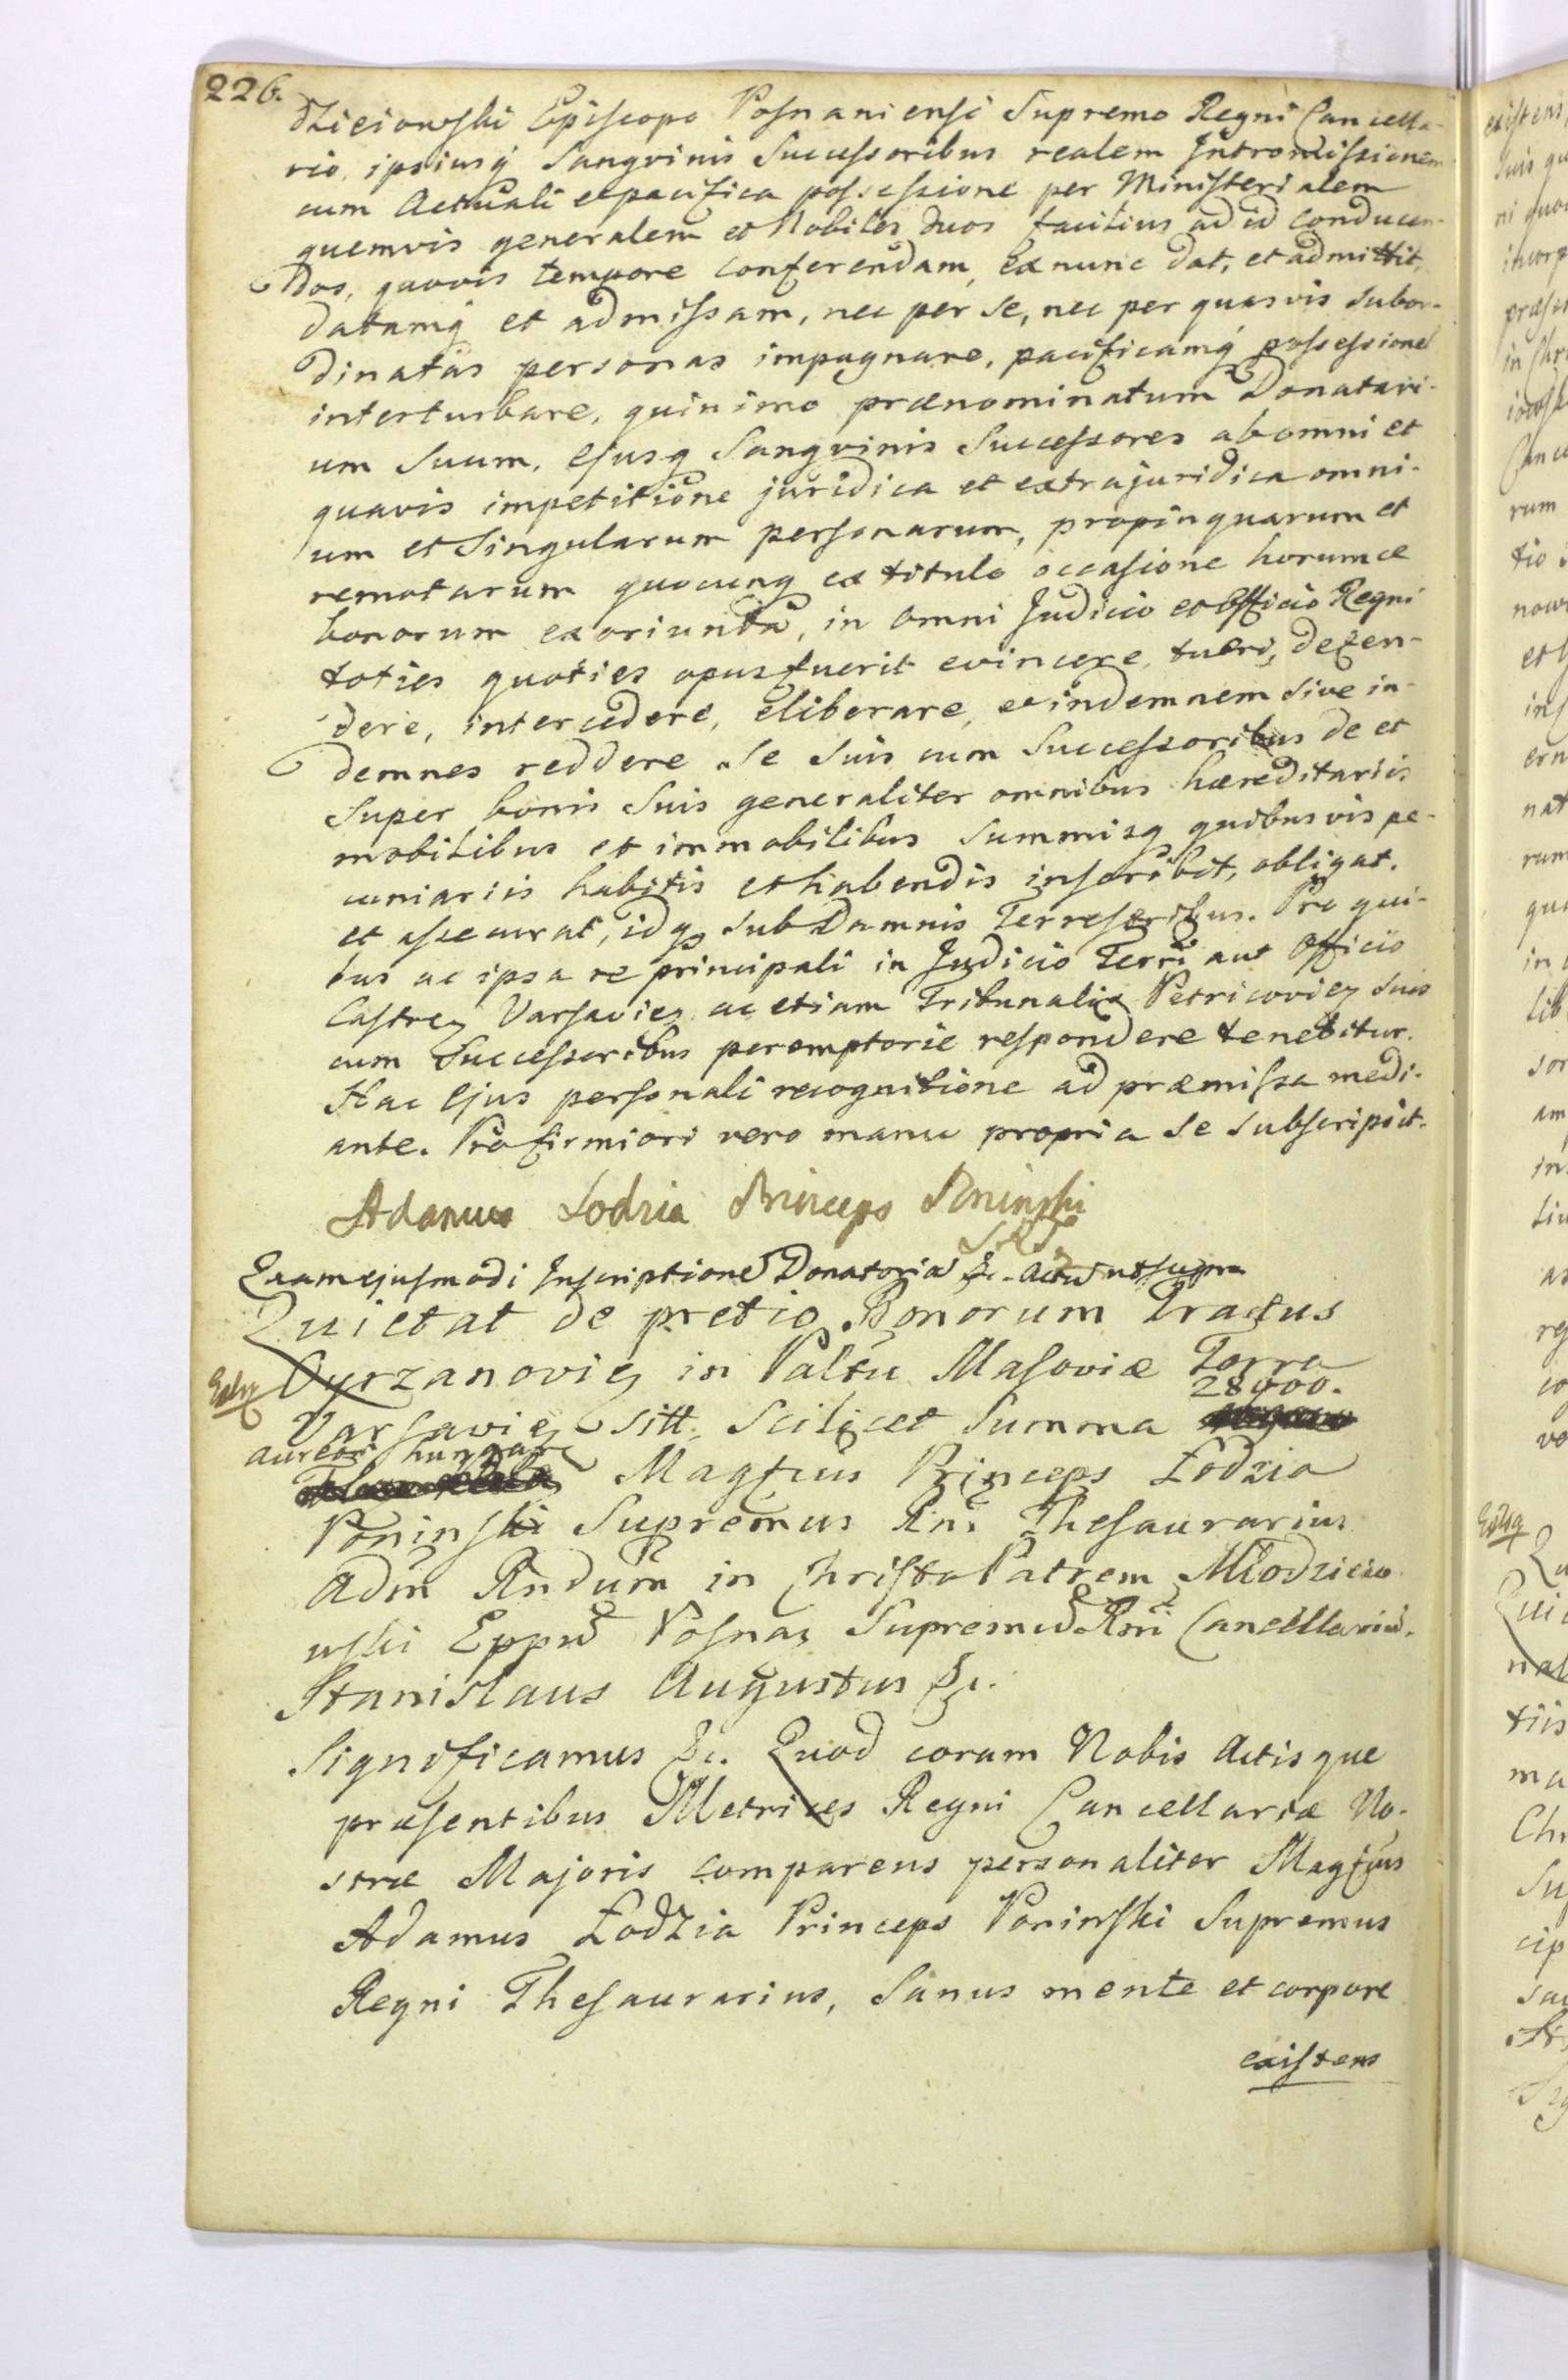 226.
dzieiowski Episcopo Posnaniensi Supremo Regni Cancella-
rio, ipsiusq Sangvinis Successoribus realem Intromissionem
cum Actuali et pacifica possessione per Ministerialem
quemvis generalem et Nobiles duos facilius ad id conducen-
dos, quovis tempore conferendam, ex nunc dat, et admittit,
datamq et admissam, nec per se, nec per quasvis subor-
dinatas personas impugnare, pacificamq possessione
interturbare, quinimo prænominatum Donatari-
um Suum, Ejusq Sangvinis Successores ab omni et
quavis impetitione juridica et extrajuridica omni-
um et Singularum personarum, propinquarum et
remotarum quocunq ex titulo occasione horumce
bonorum exoriunda, in omni Judicio et Officio Regni
toties quoties opus fuerit evincere, tueri, defen-
dere, intercedere, eliberare, et indemnem sive in-
demnes reddere Se Suis cum Successoribus de et
Super bonis Suis generaliter omnibus hæreditariis
mobilibus et immobilibus Summisq quibusvis pe-
cuniariis habitis et habendis inscribit, obligat,
et assecurat, idq sub Damnis Terrestribus. Pro qui-
bus ac ipsa re principali in Judicio Terri aut Officio
Castren Varsavien ac etiam Tribunalis Petricovien suis
cum Successoribus peremptorie respondere tenebitur.
Hac Ejus personali recognitione ad præmissa medi-
ante. Pro firmiori vero manu propria Se Subscripsit.
Adamus Lodzia Princeps Poninski
Eram ejusmodi Inscriptione Donatoria &c. actu ut supra
Quietat de pretio Bonorum Tractus
Oyrzanovien in Paltu Masoviæ Terra
28000.
Varsavien sitt, scilicet Summa
aureor hungar
Magfcus Princeps Łodzia
Poninski Supremus Rni Thesaurarius
Adm Rndum in Christo Patrem Młodzieio
wski Eppum Posnan Supremum Rni Cancellarium.
Stanislaus Augustus &c.
Significamus &c. Quod coram Nobis Actisque
præsentibus Metrices Regni Cancellariæ No-
stræ Majoris comparens personaliter Magfcus
Adamus Łodzia Princeps Poninski Supremus
Regni Thesaurarius, Sanus mente et corpore
existens